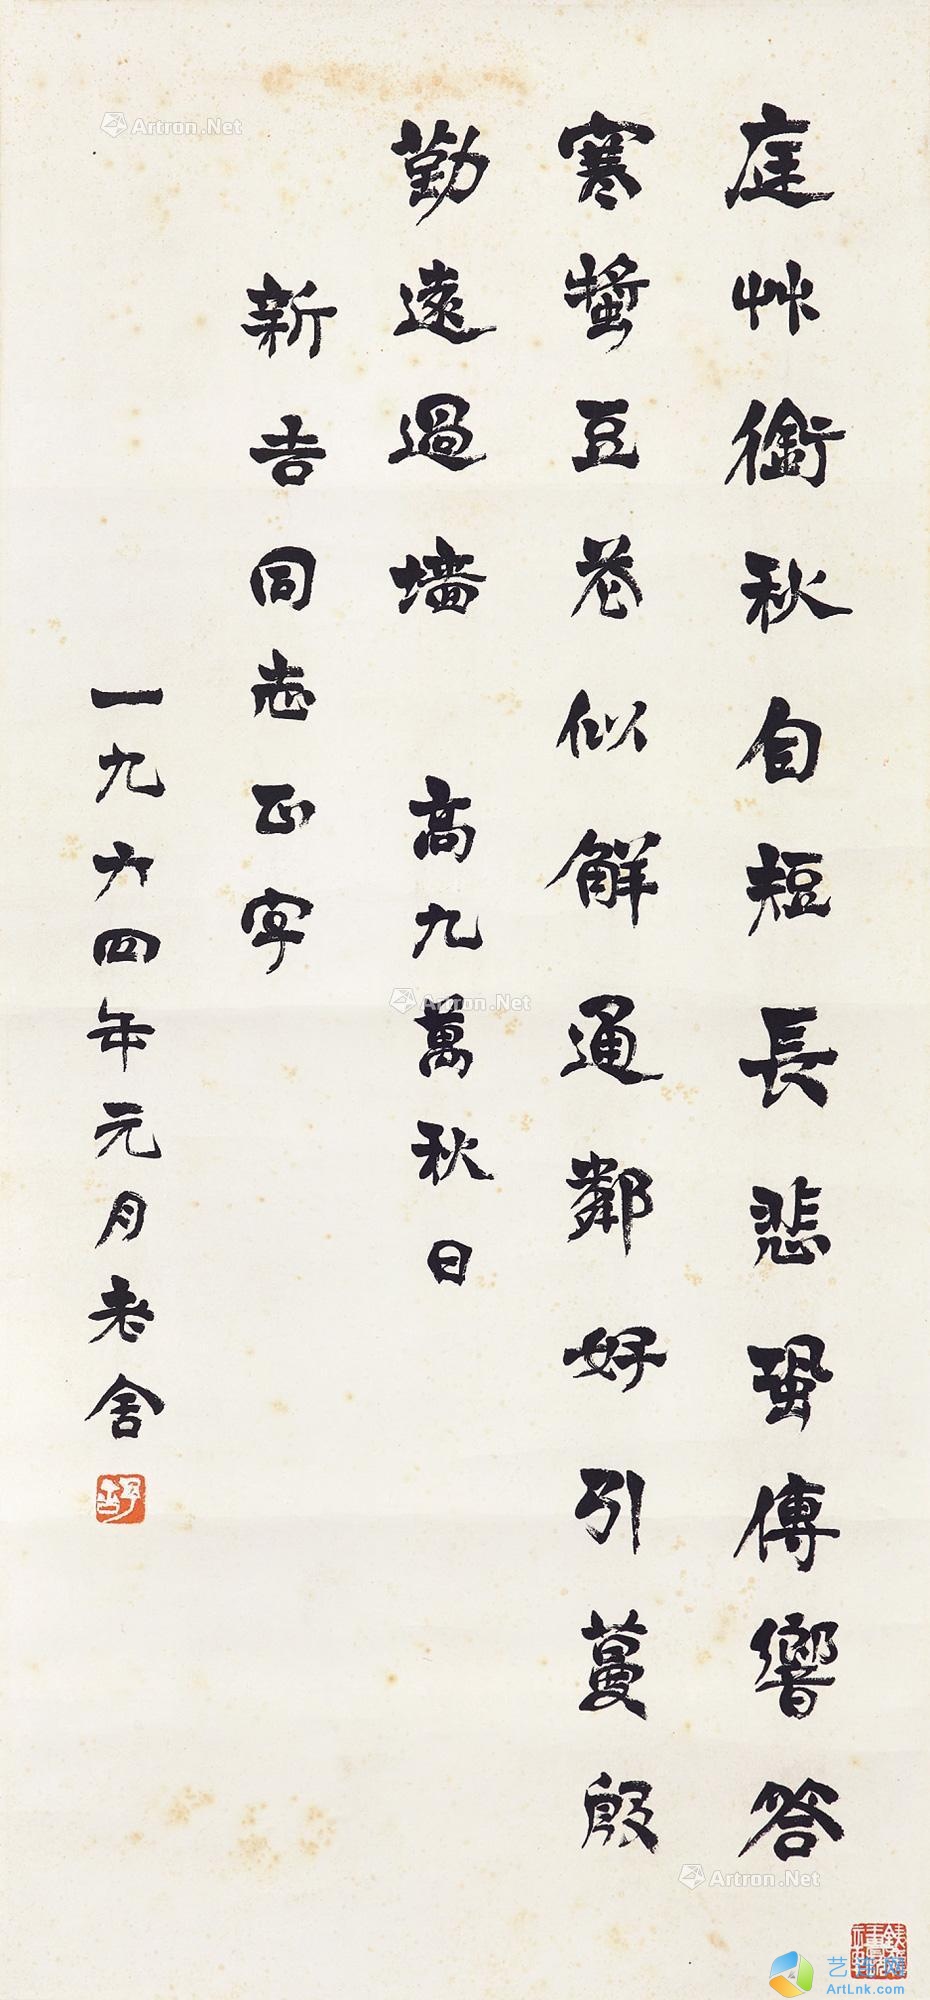 庭艸銜秋自短長悲蛩傳響答
寒螿豆花似解通鄰好引蔓殷
勤遠過墻
高九萬秋日
新吉同志正字
一九六四年元月老舍
舒
Artron.Net
Artron.Net
Artron.Net
艺
ArtLnk.com